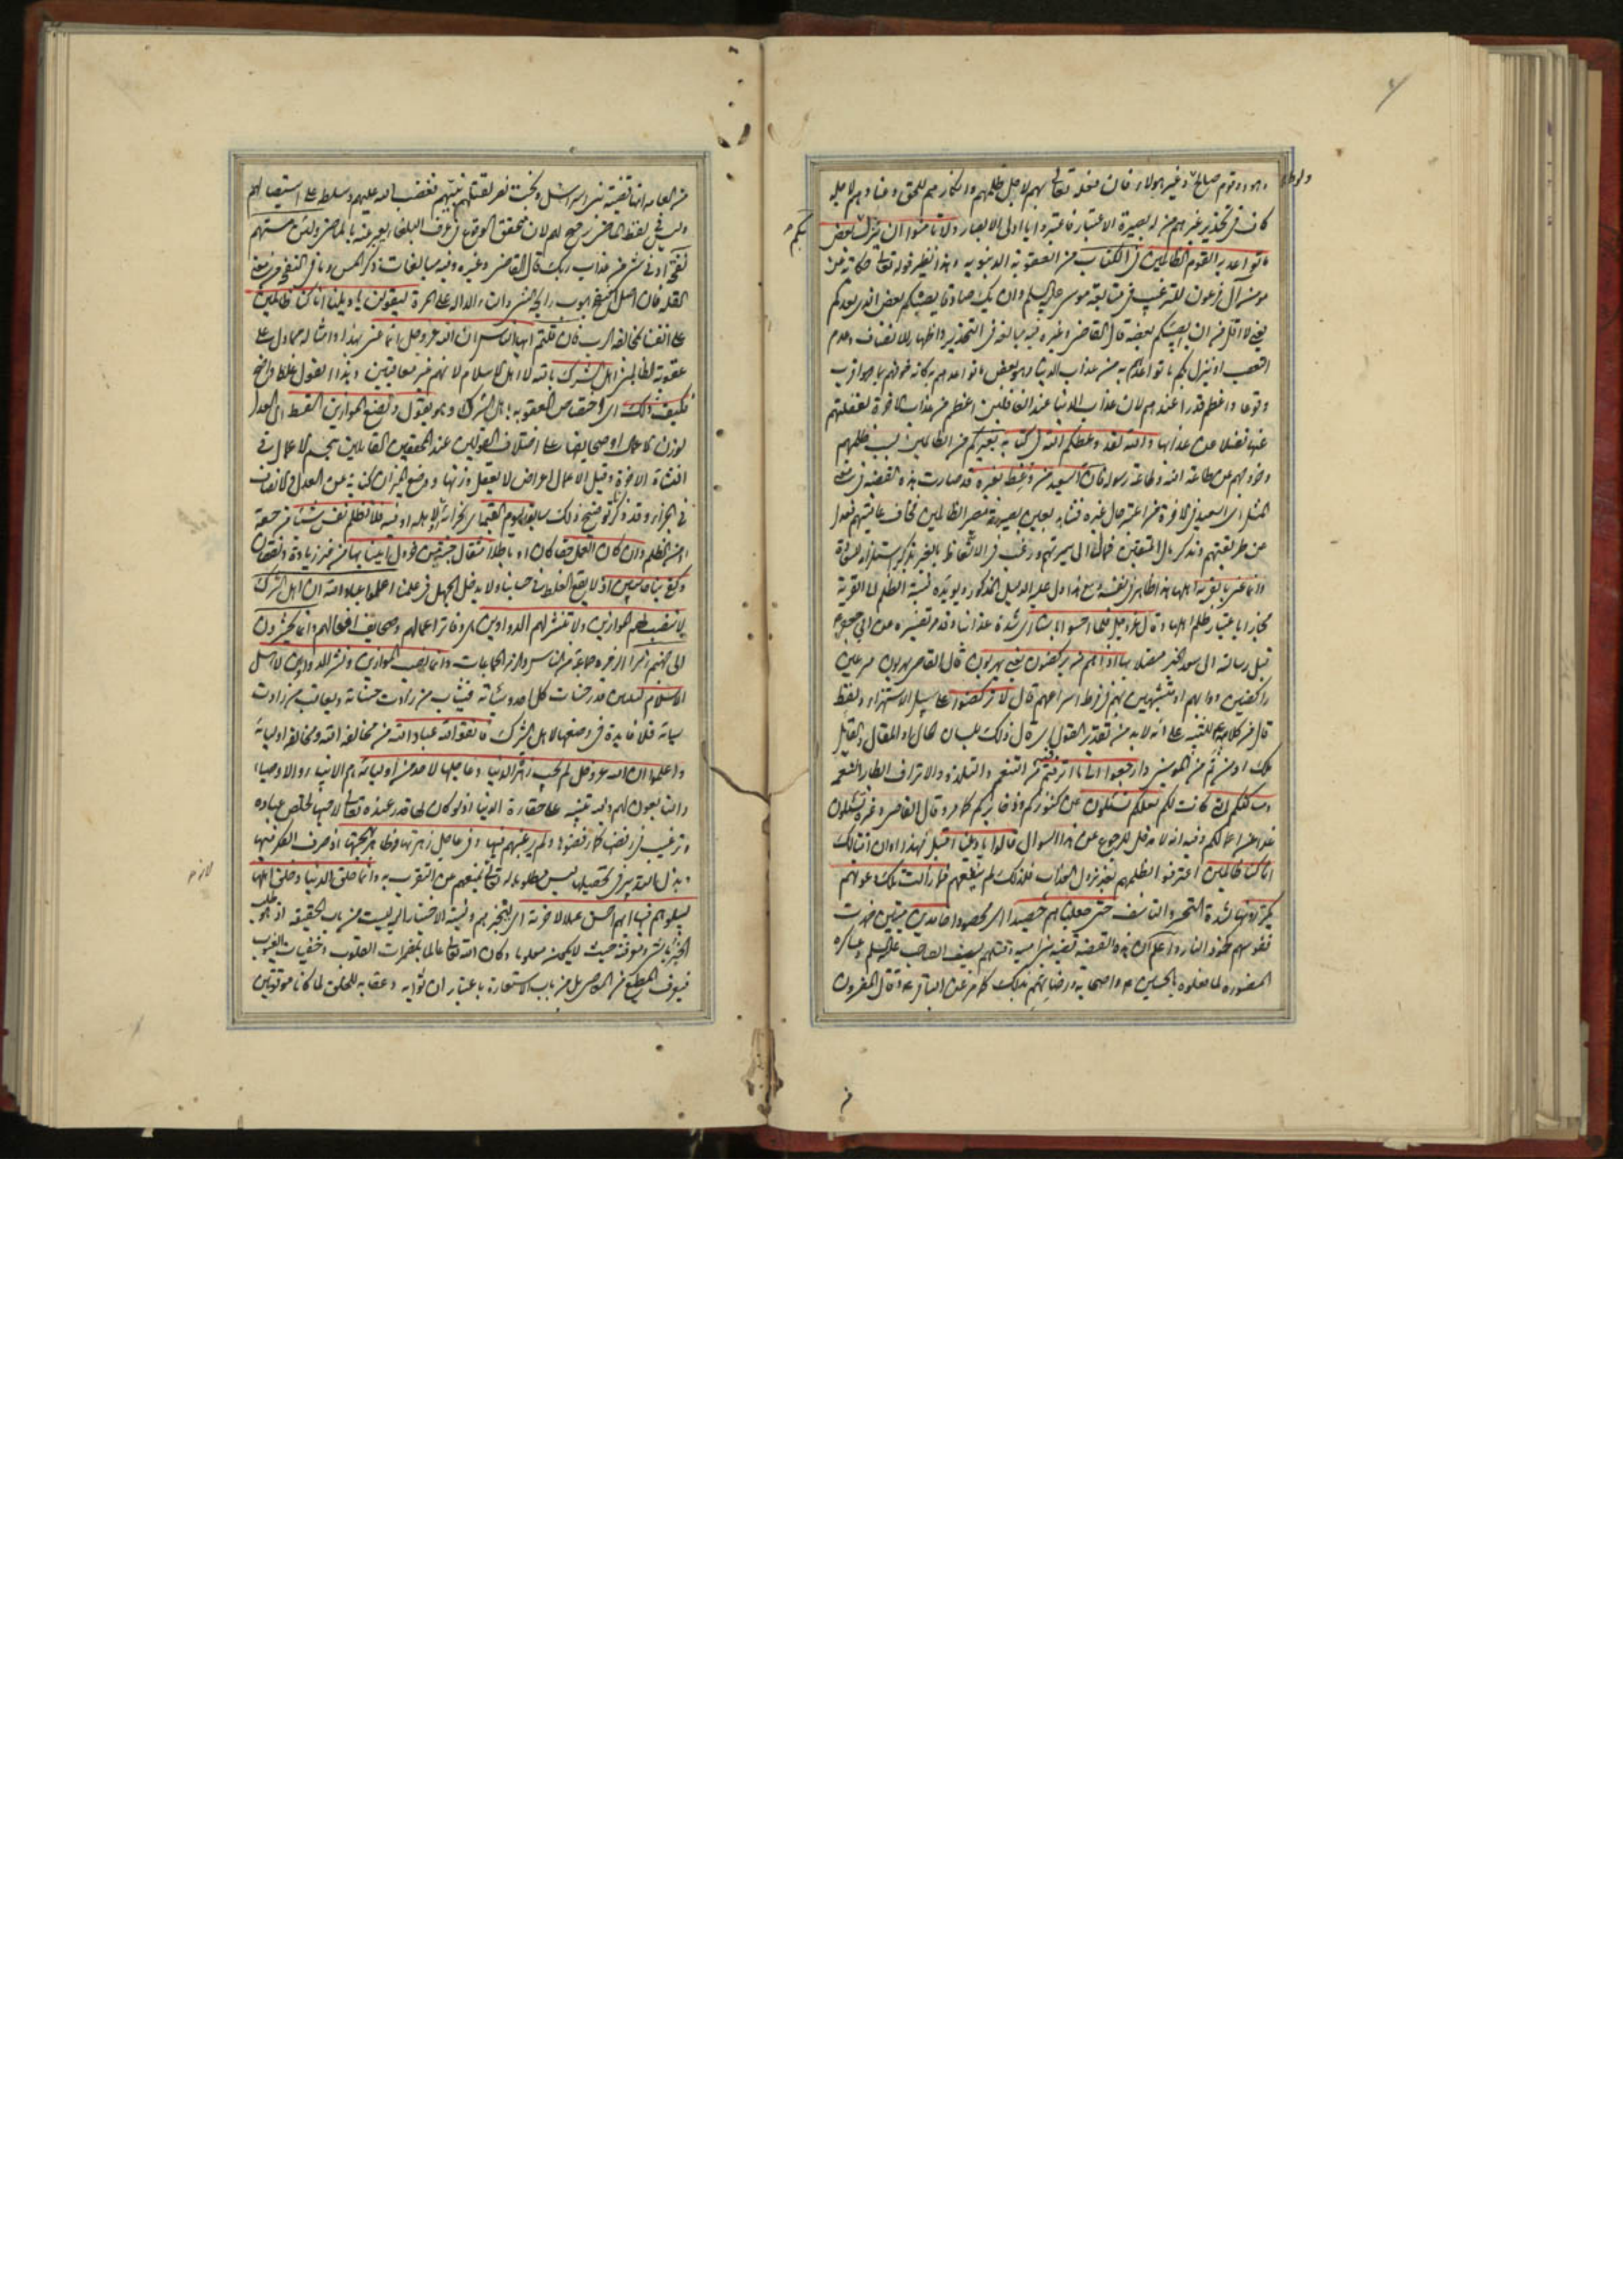 وهود وقوم صالح وغير هؤلاء فان فعله تعالى بهم لاجل ظلمهم وانكارهم للحق وعنادهم لاهله
كاف فى تحذير غيرهم من له بصيرة الاعتبار فاعتبروا يا اولى الابصار ولا تامنوا ان ينزل بعض
ما تواعد به القوم الظالمين فى الكتاب من العقوبة الدنيوية وهذا نظير قوله تعالى حكاية عن
مومن آل فرعون للترغيب فى متابعة موسى عليه السلم وان يك صادقا يصبكم بعض الذى يعدكم
يعنى لا اقل من ان يصيبكم بعضه قال القاضى وغيره فيه مبالغة فى التحذير واظهار للانصاف وعدم
التعصب او ينزل بكم ما تواعدكم به من عذاب الدنيا وهو بعض ما تواعدهم به كانه خوفهم بما هو اقرب
وقوعا واعظم قدرا عندهم لان عذاب الدنيا عند الغافلين اعظم من عذاب الآخرة لغفلتهم
عنها فضلا عن عذابها والله لقد وعظكم الله فى كتابه بغيركم من الظالمين بسبب ظلمهم
وخروجهم عن طاعة الله وطاعة رسوله فان السعيد من وعظ بغيره قد صارت هذه القضية فى معنى
المثل اى السعيد فى الآخرة من اعتبر حال غيره فشاهد بعين بصيرته مصير الظالمين فخاف عاقبتهم فعدل
عن طريقتهم وتذكر مآل المتقين فمال الى سيرتهم ورغب فى الاتعاظ بالغير
وانما عنى بالقرية اهلها
مجازا باعتبار ظلم اهلها وقال عز وجل فلما احسوا باسنا اى شدة عذابنا
اذا هم منها يركضون يعنى يهربون قال القاضى يهربون مسرعين
راكضين دوابهم او مشبهين بهم من فرط اسراعهم قال لا تركضوا على سبيل الاستهزاء ولفظ
قال من كلامه للتنبيه على انه لا بد من تقدير القول اى قال ذلك بلسان الحال او المقال والقائل
ملك او من ثم من المومنين وارجعوا الى ما اترفتم فيه من التنعم والتلذذ والاتراف ابطار النعمة
ومساكنكم التى كانت لكم لعلكم تسئلون عن كنوزكم وذخايركم كما مر وقال القاضى وغيره تسئلون
قالوا يا ويلنا
انا كنا ظالمين اعترفوا بظلمهم بعد نزول العذاب فلذلك لم ينفعهم فما زالت تلك دعويهم
لشدة التحسر والتاسف حتى جعلناهم حصيدا اى محصودا خامدين ميتين
نفوسهم كخمود النار واعلم ان هذه القضية قضية بنى امية وقتلهم بسيف الصاحب عليه السلم وعساكره
المنصورة لما فعلوه بالحسين ع واصحابه ورضائهم بذلك كما مر عن الباقر ع وقال المفسرون
ولوط
بكم
من العامة انها قضية بنى اسرائيل وبخت نصر لقتلهم نبيهم فغضب الله عليهم وسلط على استيصالهم
وليس فى لفظ الماضى ترجيح لهم لان محقق الوقوع فى عرف البلغاء يعبر عنه بالماضى ولئن مستهم
نفحة ادنى شئ من عذاب ربك قال القاضى وغيره وفيه مبالغات ذكر المس وما فى النفح من معنى
القلة فان اصل النفح هبوب رايحة الشئ والتاء الدالة على المرة ليقولن يا ويلنا انا كنا ظالمين
على انفسنا لمخالفة الرب فان قلتم ايها الناس ان الله عز وجل انما عنى بهذا وامثاله مما دل على
عقوبة الظالمين اهل الشرك بالله لا اهل الاسلام لانهم غير معاقبين وهذا القول غلط واضح
فكيف ذلك اى اختصاص العقوبة باهل الشرك وهو يقول ونضع الموازين القسط اى العدل
لوزن الاعمال او صحايفها على اختلاف القولين عند المحققين القائلين بتجسم الاعمال فى
النشاة الآخرة وقيل الاعمال اعراض لا يعقل وزنها ووضع الميزان كناية عن العدل والانصاف
فى الجزاء وقد ذكرنا توضيح ذلك سابقا ليوم القيمة اى لجزائه او لاهله او فيه فلا تظلم نفس شيئا من حقه
او من الظلم وان كان العمل حقا كان او باطلا مثقال حبة من خردل اتينا بها من غير زيادة ونقصان
وكفى بنا حاسبين اذ لا يقع الغلط فى حسابنا ولا يدخل الجهل فى علمنا اعلموا عباد الله ان اهل الشرك
لا ينصب لهم الموازين ولا تنشر لهم الدواوين اى دفاتر اعمالهم وصحايف افعالهم وانما يحشرون
الى جهنم زمرا الزمرة جماعة من الناس والزمر الجماعات وانما نصب الموازين ونشر الدواوين لاهل
الاسلام ليتبين قدر حسنات كل احد وسيئاته فيثاب من زادت حسناته ويعاقب من زادت
سيئاته فلا فايدة فى وضعها لاهل الشرك فاتقوا الله عباد الله من مخالفة الله ومخالفة اوليائه
واعلموا ان الله عز وجل لم يحب زهرة الدنيا وعاجلها لاحد من اوليائه وهم الانبياء والاوصياء
والتابعون لهم وفيه تنبيه على حقارة الدنيا اذ لو كان لها قدر عنده تعالى لاحبها لخلص عباده
وترغيب فى رفضها كما رفضوها ولم يرغبهم فيها وفى عاجل زهرتها وظاهر بهجتها اذ صرف الفكر فيها
وبذل التدبير فى تحصيلها ليس مطلوبا له تعالى لمنعهم عن التقرب به وانما خلق الدنيا وخلق اهلها
ليبلوهم فيها ايهم احسن عملا لآخرته اى ليختبرهم ونسبة الاختبار اليه ليست من باب الحقيقة اذ طلب
الخبر بالشئ ومعرفته حيث لا يكون معلوما وكان الله تعالى عالما بمضمرات القلوب وخفيات الغيوب
فيعرف المطيع من العاصى بل من باب الاستعارة باعتبار ان ثوابه وعقابه للخلق لما كانا موقوفين